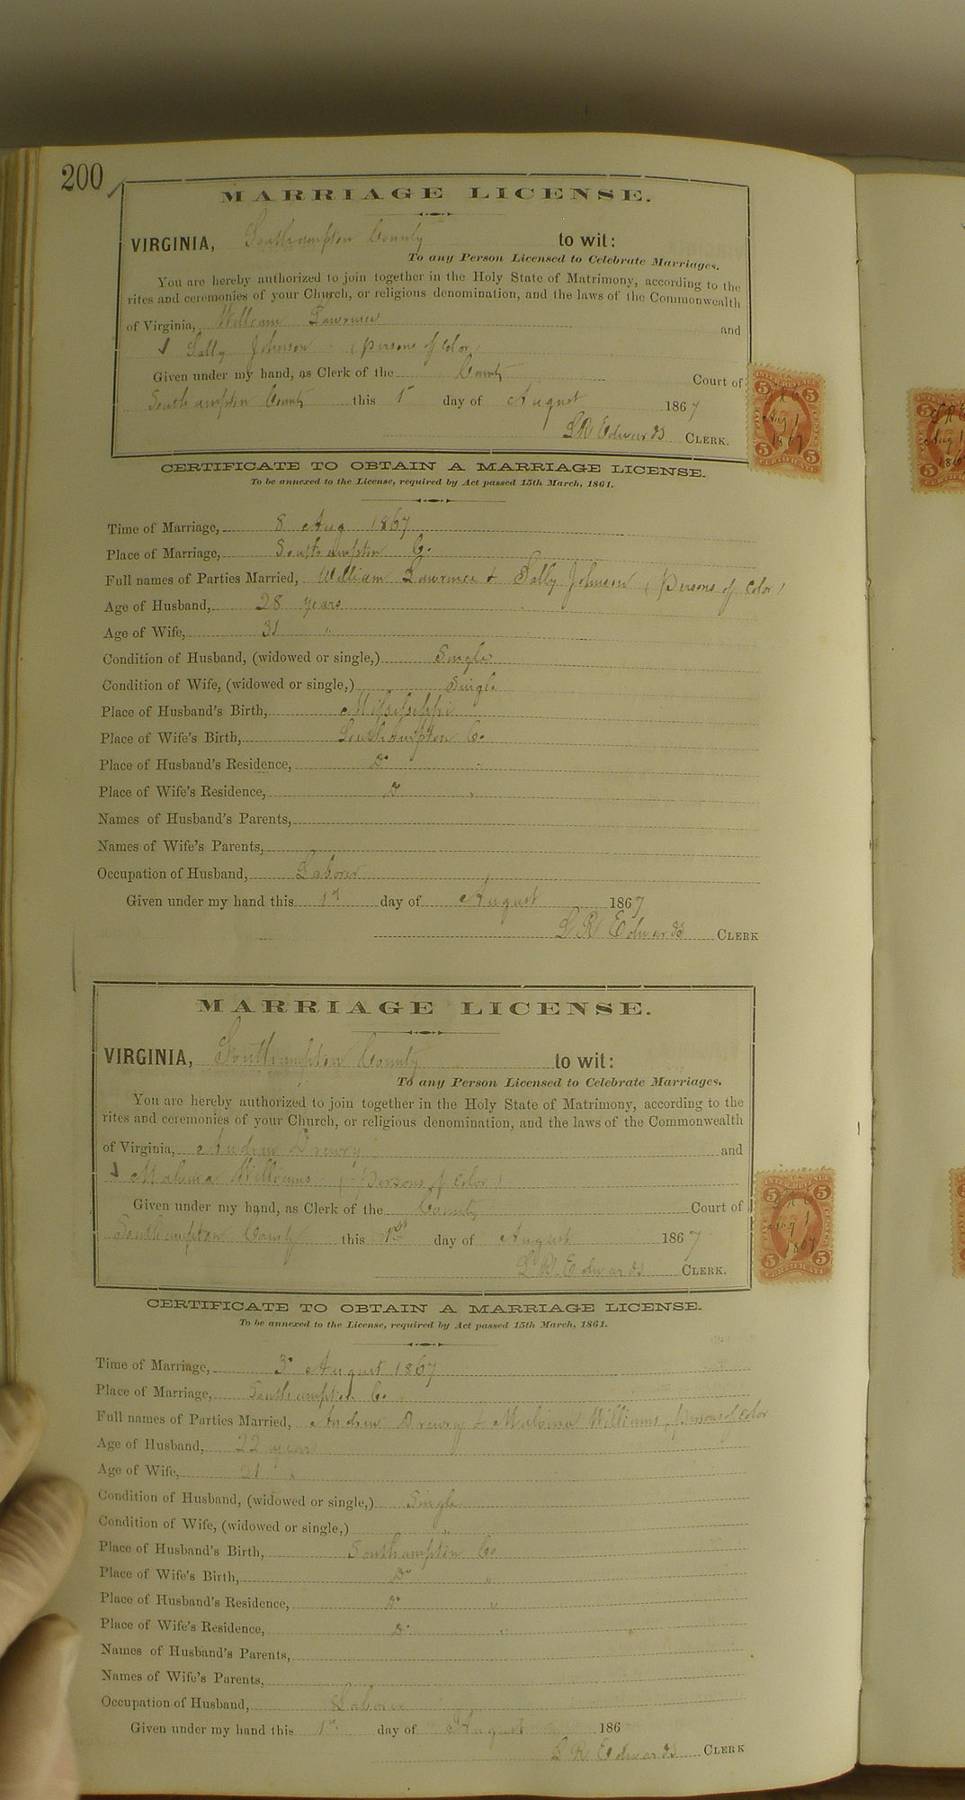 200
MARRIAGE LICENSE.
VIRGINIA, Southampton County to wit:
To any Person Licensed to Celebrate Marriages.
You are hereby authorized to join together in the Holy State of Matrimony, according to the
rites and ceremonies of your Church, or religious denomination, and the laws of the Commonwealth
of Virginia, William Lawrence and
Sally Johnson (persons of Color)
Given under my hand, as Clerk of the County Court of
Southampton County this 1st day of August 1867
L R Edwards CLERK.
CERTIFICATE TO OBTAIN A MARRIAGE LICENSE.
To be annexed to the License, required by Act passed 15th March, 1861.
Time of Marriage, 8 Aug 1867
Place of Marriage, Southampton Co.
Full names of Parties Married, William Lawrence & Sally Johnson (Persons of Color)
Age of Husband, 28 years
Age of Wife, 31 "
Condition of Husband, (widowed or single,) Single
Condition of Wife, (widowed or single,) Single
Place of Husband's Birth, Mississippi
Place of Wife's Birth, Southampton Co.
Place of Husband's Residence, Do "
Place of Wife's Residence, Do "
Names of Husband's Parents,
Names of Wife's Parents,
Occupation of Husband, Laborer
Given under my hand this 1st day of August 1867
L R Edwards CLERK
MARRIAGE LICENSE.
VIRGINIA, Southampton County to wit:
To any Person Licensed to Celebrate Marriages.
You are hereby authorized to join together in the Holy State of Matrimony, according to the
rites and ceremonies of your Church, or religious denomination, and the laws of the Commonwealth
of Virginia, Andrew Drewry and
Williams (Persons of Color)
Given under my hand, as Clerk of the County Court of
Southampton County this 1st day of August 1867
L R Edwards CLERK.
CERTIFICATE TO OBTAIN A MARRIAGE LICENSE.
To be annexed to the License, required by Act passed 15th March, 1861.
Time of Marriage, 3d August 1867
Place of Marriage, Southampton Co.
Full names of Parties Married, Andrew Drewry & Williams, persons of Color
Age of Husband, 22 years
Age of Wife, 21 "
Condition of Husband, (widowed or single,) Single
Condition of Wife, (widowed or single,) "
Place of Husband's Birth, Southampton Co
Place of Wife's Birth, Do "
Place of Husband's Residence, Do "
Place of Wife's Residence, Do "
Names of Husband's Parents,
Names of Wife's Parents,
Occupation of Husband, Laborer
Given under my hand this 1st day of August 186
L R Edwards CLERK
5 5
Aug 1
1867
5 5
CERTIFICATE
5 5
Aug 1
1867
5 5
CERTIFICATE
Aug 1